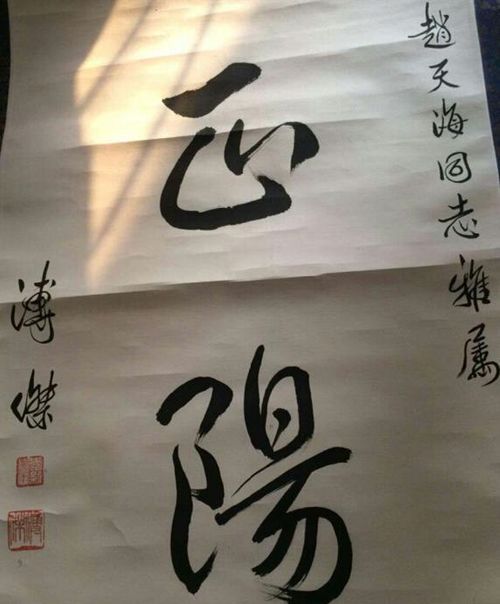 趙天海同志雅属
正陽
溥傑